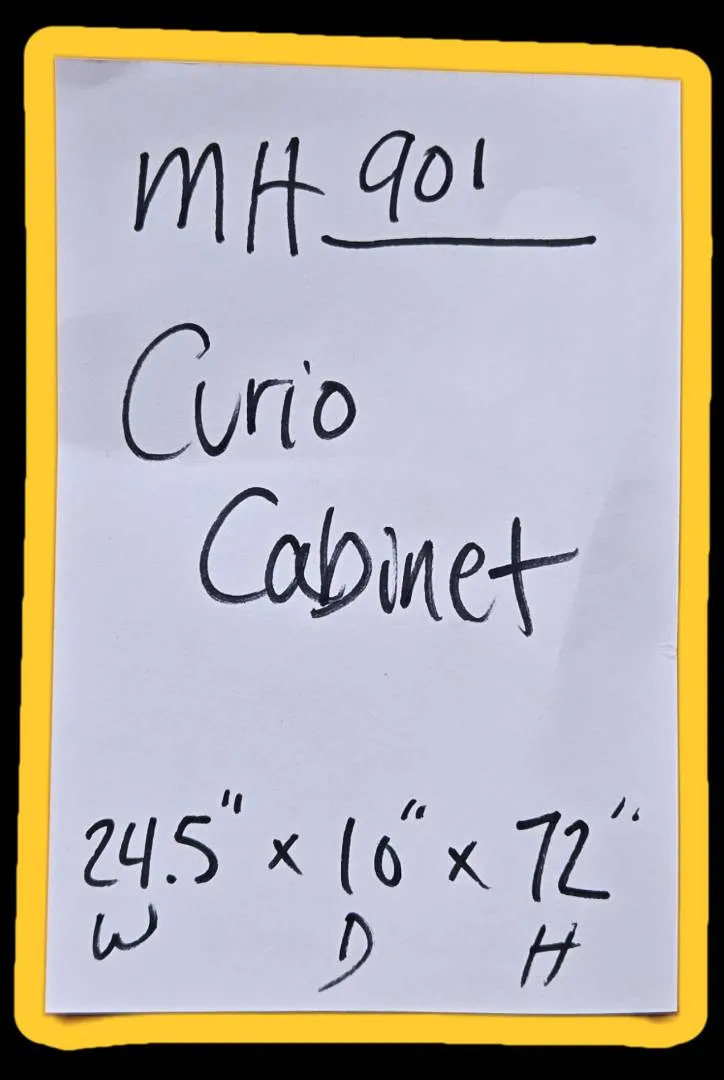 MH 901
Curio
Cabinet
24.5" x 10" x 72"
W D H